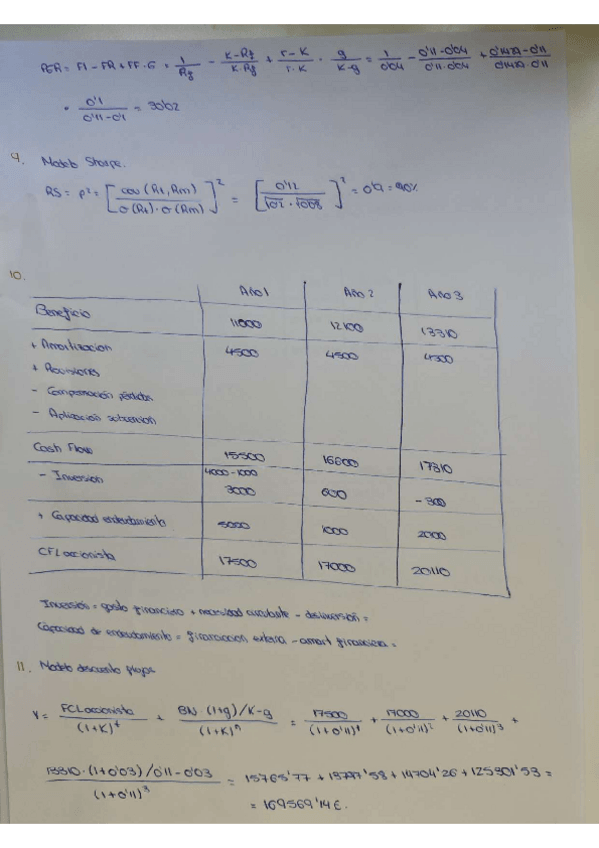 PER = F1 - FR + FF · G = 1/Rf - K-Rf/K·Rf + r-K/r·K · g/K-g = 1/0'04 - 0'11-0'04/0'11·0'04 + 0'1429-0'11/0'1429·0'11
· 0'1/0'11-0'1 = 30'02
9. Modelo Sharpe.
RS = ρ² = [cov (Ri, Rm)/σ(Ri)·σ(Rm)]² = [0'12/]² = 0'9 = 90%
10.
Año 1 Año 2 Año 3
Beneficio 11000 12100 13310
+ Amortizacion 4500 4500 4500
+ Provisiones
- Compensación pérdidas
- Aplicación subvencion
Cash Flow 15500 16600 17810
4000-1000
- Inversion 3000 600 -300
+ Capacidad endeudamiento 5000 1000 2000
CFLaccionista 17500 17000 20110
Inversion = gasto financiero + necesidad circulante - desinversión =
Capacidad de endeudamiento = financiacion externa - amort financiera =
11. Modelo descuento flujos
V = FCLaccionista/(1+K)^1 + BN·(1+g)/K-g/(1+K)^n = 17500/(1+0'11)^1 + 17000/(1+0'11)² + 20110/(1+0'11)³ +
13310·(1+0'03)/0'11-0'03/(1+0'11)³ = 15765'77 + 13797'58 + 14704'26 + 125301'53 =
= 169569'14€.